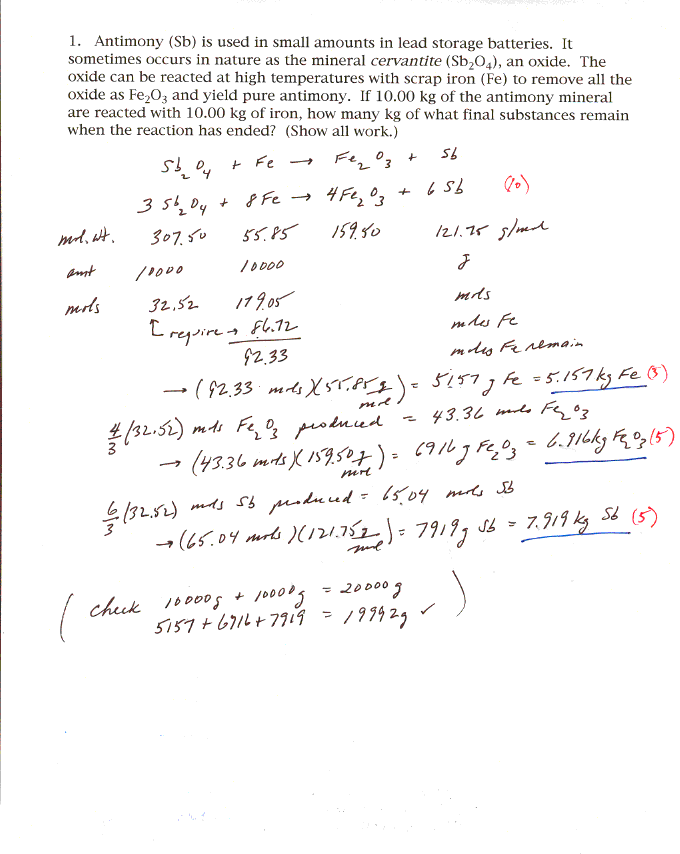 1. Antimony (Sb) is used in small amounts in lead storage batteries. It
sometimes occurs in nature as the mineral cervantite (Sb₂O₄), an oxide. The
oxide can be reacted at high temperatures with scrap iron (Fe) to remove all the
oxide as Fe₂O₃ and yield pure antimony. If 10.00 kg of the antimony mineral
are reacted with 10.00 kg of iron, how many kg of what final substances remain
when the reaction has ended? (Show all work.)
Sb₂O₄ + Fe → Fe₂O₃ + Sb
3 Sb₂O₄ + 8 Fe → 4 Fe₂O₃ + 6 Sb (10)
mol. wt. 307.50 55.85 159.50 121.75 g/mol
amt 10000 10000 g
mols 32.52 179.05 mols
require → 86.72 moles Fe
92.33 moles Fe remain
→ (92.33 mols)(55.85 g/mol) = 5157 g Fe = 5.157 kg Fe (5)
4/3 (32.52) mols Fe₂O₃ produced = 43.36 moles Fe₂O₃
→ (43.36 mols)(159.50 g/mol) = 6916 g Fe₂O₃ = 6.916 kg Fe₂O₃ (5)
6/3 (32.52) mols Sb produced = 65.04 mols Sb
→ (65.04 mols)(121.75 g/mol) = 7919 g Sb = 7.919 kg Sb (5)
( check 10000 g + 10000 g = 20000 g )
5157 + 6916 + 7919 = 19992 g ✓